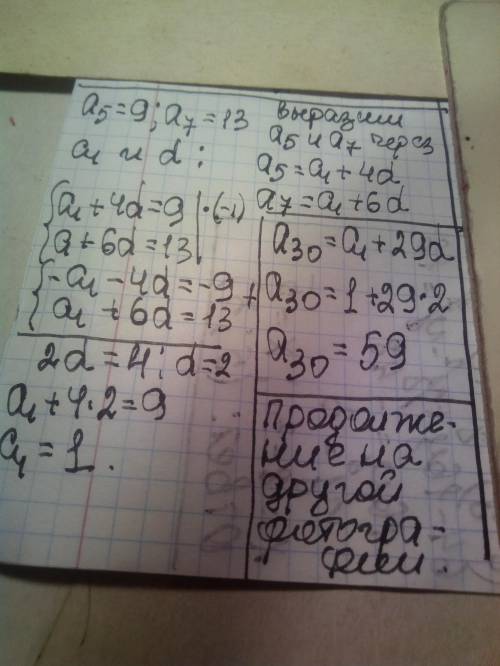 a₅ = 9; a₇ = 13 выразим
a₅ и a₇ через
a₁ и d:
a₅ = a₁ + 4d
a₇ = a₁ + 6d
{a₁ + 4d = 9 | · (-1)
{a + 6d = 13 |
{-a₁ - 4d = -9 +
{a₁ + 6d = 13
2d = 4; d = 2
a₁ + 4·2 = 9
a₁ = 1.
a₃₀ = a₁ + 29d
a₃₀ = 1 + 29·2
a₃₀ = 59
продолже-
ние на
другой
фотогра-
фии.